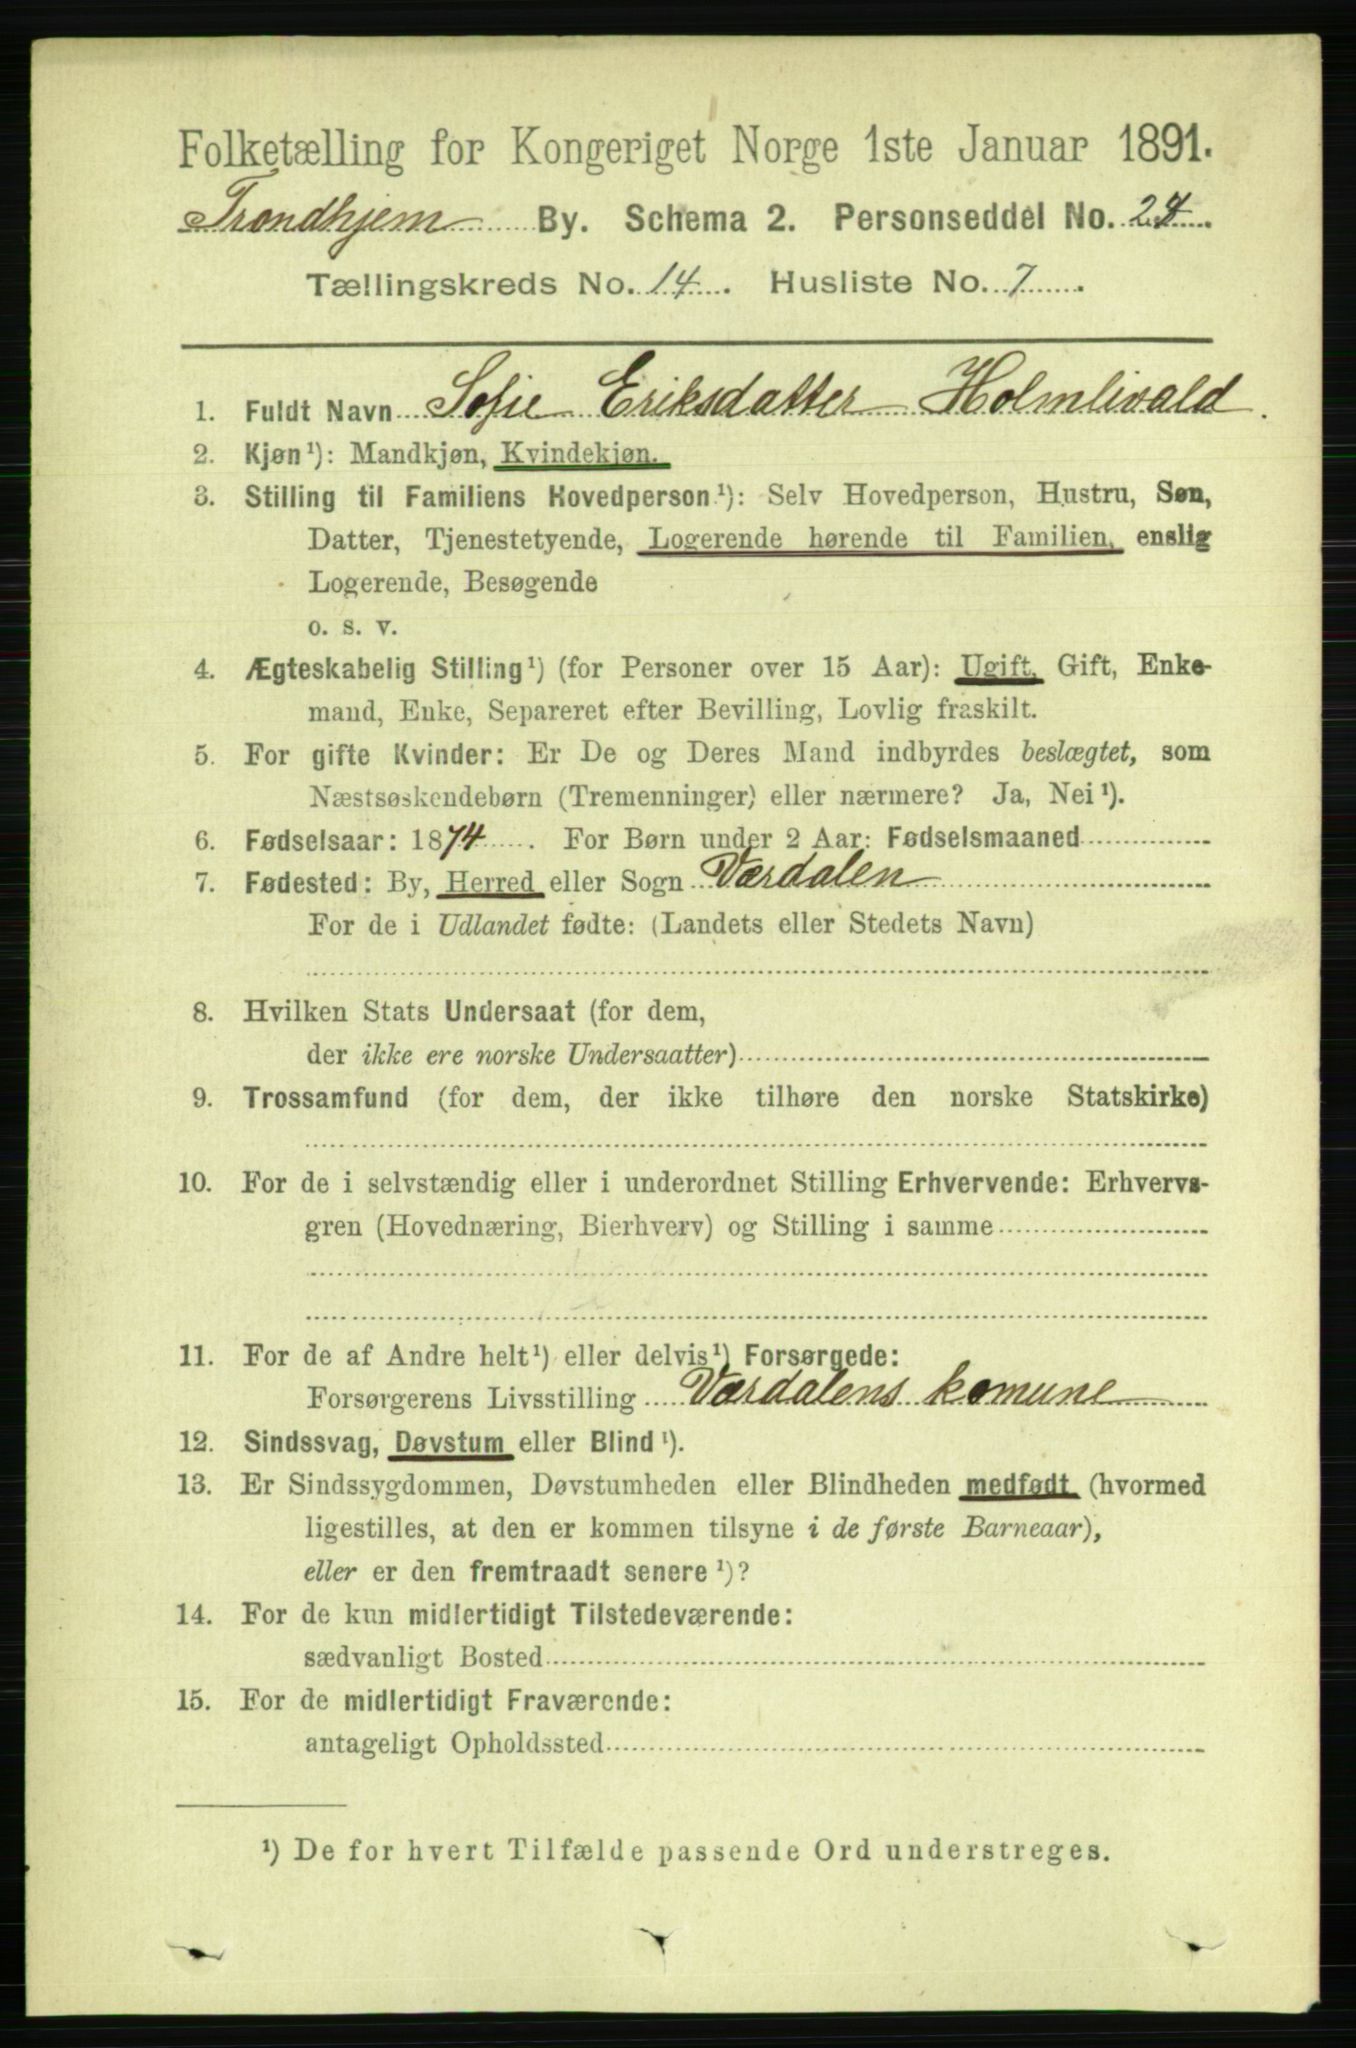 Folketælling for Kongeriget Norge 1ste Januar 1891.
Trondhjem By. Schema 2. Personseddel No. 24
Tællingskreds No. 14. Husliste No. 7.
1. Fuldt Navn Sofie Eriksdatter Holmlivald.
2. Kjøn¹): Mandkjøn, Kvindekjøn.
3. Stilling til Familiens Hovedperson¹): Selv Hovedperson, Hustru, Søn,
Datter, Tjenestetyende, Logerende hørende til Familien, enslig
Logerende, Besøgende
o. s. v.
4. Ægteskabelig Stilling¹) (for Personer over 15 Aar): Ugift, Gift, Enke-
mand, Enke, Separeret efter Bevilling, Lovlig fraskilt.
5. For gifte Kvinder: Er De og Deres Mand indbyrdes beslægtet, som
Næstsøskendebørn (Tremenninger) eller nærmere? Ja, Nei¹).
6. Fødselsaar: 1874. For Børn under 2 Aar: Fødselsmaaned
7. Fødested: By, Herred eller Sogn Værdalen
For de i Udlandet fødte: (Landets eller Stedets Navn)
8. Hvilken Stats Undersaat (for dem,
der ikke ere norske Undersaatter)
9. Trossamfund (for dem, der ikke tilhøre den norske Statskirke)
10. For de i selvstændig eller i underordnet Stilling Erhvervende: Erhvervs-
gren (Hovednæring, Bierhverv) og Stilling i samme
11. For de af Andre helt¹) eller delvis¹) Forsørgede:
Forsørgerens Livsstilling Værdalens komune
12. Sindssvag, Døvstum eller Blind¹).
13. Er Sindssygdommen, Døvstumheden eller Blindheden medfødt (hvormed
ligestilles, at den er kommen tilsyne i de første Barneaar),
eller er den fremtraadt senere¹)?
14. For de kun midlertidigt Tilstedeværende:
sædvanligt Bosted
15. For de midlertidigt Fraværende:
antageligt Opholdssted
¹) De for hvert Tilfælde passende Ord understreges.